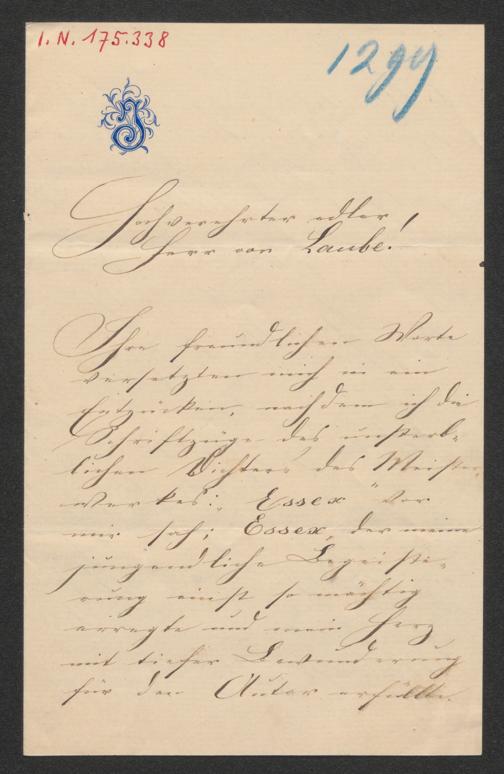 I. N. 175.338
1299
J
Hochverehrter edler
Herr von Laube!
Ihre freundlichen Worte
versetzten mich in ein
Entzücken, nachdem ich die
Schriftzüge des unsterb-
lichen Dichters des Meister-
werkes: „Essex" vor
mir sah; Essex, der meine
jugendliche Begeiste-
rung einst so mächtig
erregte und mein Herz
mit tiefer Bewunderung
für den Autor erfüllte.